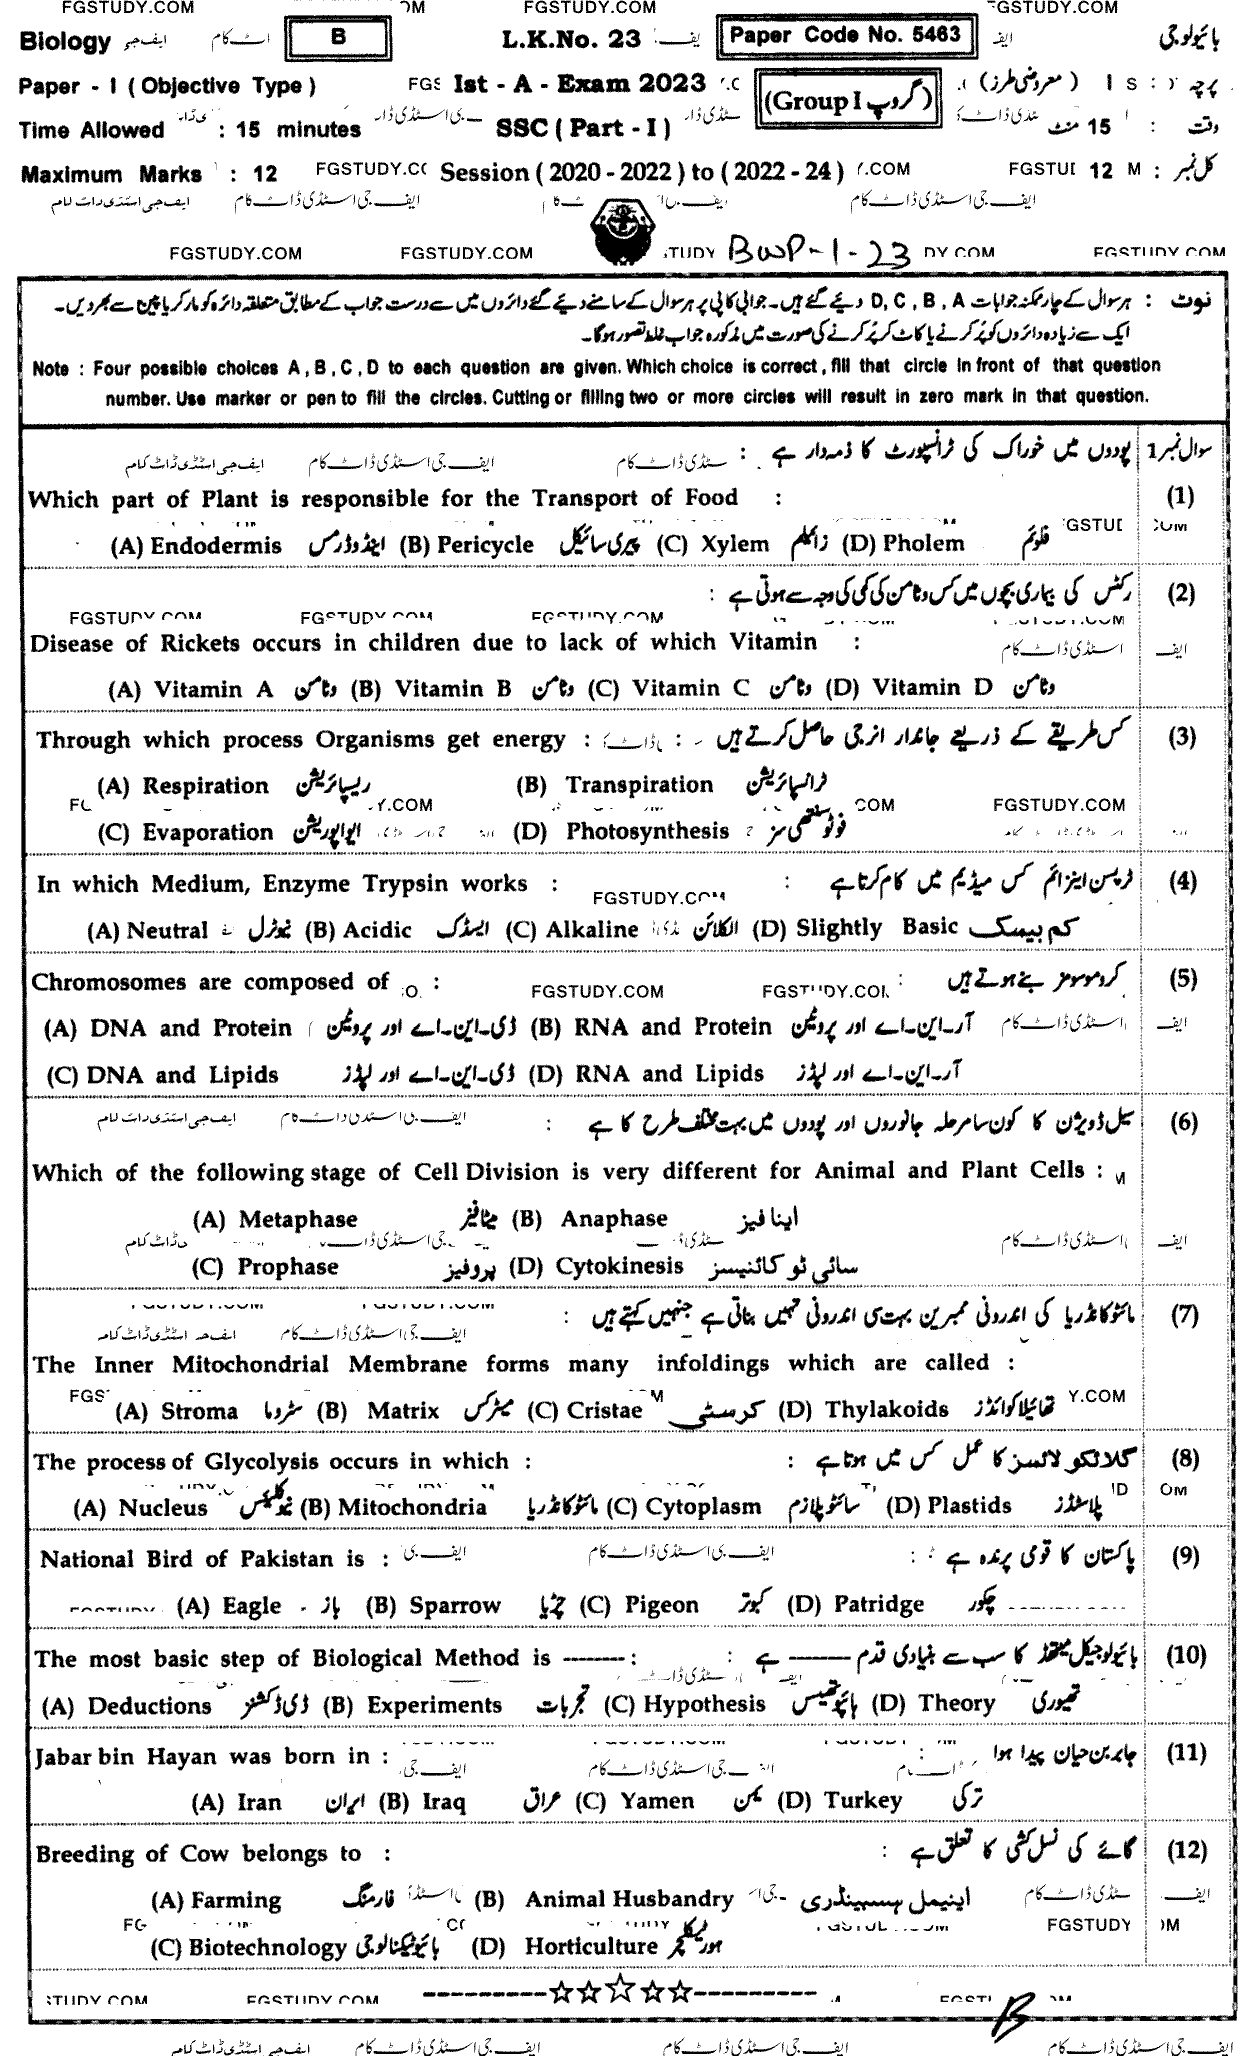 FGSTUDY.COM OM FGSTUDY.COM FGSTUDY.COM
Biology B L.K.No. 23 Paper Code No. 5463 بائیولوجی
Paper - I ( Objective Type ) Ist - A - Exam 2023 (Group I گروپ) پرچہ : I ( معروضی طرز )
Time Allowed : 15 minutes SSC ( Part - I ) وقت : 15 منٹ
Maximum Marks : 12 FGSTUDY.CO Session ( 2020 - 2022 ) to ( 2022 - 24 ) Y.COM FGSTU 12 M کل نمبر :
ایف جی اسٹڈی ڈاٹ کام ایف جی اسٹڈی ڈاٹ کام
FGSTUDY.COM FGSTUDY.COM TUDY BWP-1-23 DY.COM FGSTUDY.COM
نوٹ : ہر سوال کے چار ممکنہ جوابات D, C, B, A دیئے گئے ہیں۔ جوابی کاپی پر ہر سوال کے سامنے دیئے گئے دائروں میں سے درست جواب کے مطابق متعلقہ دائرہ کو مارکر یا پین سے بھر دیں۔
ایک سے زیادہ دائروں کو پُر کرنے یا کاٹ کر پُر کرنے کی صورت میں مذکورہ جواب غلط تصور ہوگا۔
Note : Four possible choices A , B , C , D to each question are given. Which choice is correct , fill that circle in front of that question
number. Use marker or pen to fill the circles. Cutting or filling two or more circles will result in zero mark in that question.
سوال نمبر 1 پودوں میں خوراک کی ٹرانسپورٹ کا ذمہ دار ہے :
Which part of Plant is responsible for the Transport of Food : (1)
(A) Endodermis اینڈوڈرمس (B) Pericycle پیری سائیکل (C) Xylem زائیلم (D) Pholem فلوئم
رکٹس کی بیماری بچوں میں کس وٹامن کی کمی کی وجہ سے ہوتی ہے : (2)
FGSTUDY.COM FGSTUDY.COM FGSTUDY.COM
Disease of Rickets occurs in children due to lack of which Vitamin :
(A) Vitamin A وٹامن (B) Vitamin B وٹامن (C) Vitamin C وٹامن (D) Vitamin D وٹامن
Through which process Organisms get energy : کس طریقے کے ذریعے جاندار انرجی حاصل کرتے ہیں : (3)
(A) Respiration ریسپائریشن (B) Transpiration ٹرانسپائریشن
Y.COM COM FGSTUDY.COM
(C) Evaporation ایواپوریشن (D) Photosynthesis فوٹوسنتھی سز
In which Medium, Enzyme Trypsin works : ٹرپسن اینزائم کس میڈیم میں کام کرتا ہے : (4)
FGSTUDY.COM
(A) Neutral نیوٹرل (B) Acidic ایسڈک (C) Alkaline الکلائن (D) Slightly Basic کم بیسک
Chromosomes are composed of : FGSTUDY.COM کروموسومز بنے ہوتے ہیں : (5)
(A) DNA and Protein ڈی۔این۔اے اور پروٹین (B) RNA and Protein آر۔این۔اے اور پروٹین
(C) DNA and Lipids ڈی۔این۔اے اور لپڈز (D) RNA and Lipids آر۔این۔اے اور لپڈز
سیل ڈویژن کا کون سا مرحلہ جانوروں اور پودوں میں بہت مختلف طرح کا ہے : (6)
Which of the following stage of Cell Division is very different for Animal and Plant Cells :
(A) Metaphase میٹافیز (B) Anaphase اینافیز
(C) Prophase پروفیز (D) Cytokinesis سائی ٹو کائنیسز
مائٹوکانڈریا کی اندرونی ممبرین بہت سی اندرونی تہیں بناتی ہے جنہیں کہتے ہیں : (7)
The Inner Mitochondrial Membrane forms many infoldings which are called :
(A) Stroma سٹروما (B) Matrix میٹرکس (C) Cristae کرسٹی (D) Thylakoids تھائیلاکوائڈز Y.COM
The process of Glycolysis occurs in which : گلائکولائسز کا عمل کس میں ہوتا ہے : (8)
(A) Nucleus نیوکلیئس (B) Mitochondria مائٹوکانڈریا (C) Cytoplasm سائٹوپلازم (D) Plastids پلاسٹڈز
National Bird of Pakistan is : پاکستان کا قومی پرندہ ہے : (9)
(A) Eagle باز (B) Sparrow چڑیا (C) Pigeon کبوتر (D) Patridge چکور
The most basic step of Biological Method is ------- : بائیولوجیکل میتھڈ کا سب سے بنیادی قدم ------- ہے : (10)
(A) Deductions ڈی ڈکشنز (B) Experiments تجربات (C) Hypothesis ہائپوتھیسس (D) Theory تھیوری
Jabar bin Hayan was born in : جابر بن حیان پیدا ہوا : (11)
(A) Iran ایران (B) Iraq عراق (C) Yamen یمن (D) Turkey ترکی
Breeding of Cow belongs to : گائے کی نسل کشی کا تعلق ہے : (12)
(A) Farming فارمنگ (B) Animal Husbandry اینیمل ہسبینڈری
FGSTUDY
(C) Biotechnology بائیوٹیکنالوجی (D) Horticulture ہورٹیکلچر
STUDY.COM FGSTUDY.COM ---------☆☆☆☆☆---------
B
ایف جی اسٹڈی ڈاٹ کام ایف جی اسٹڈی ڈاٹ کام ایف جی اسٹڈی ڈاٹ کام